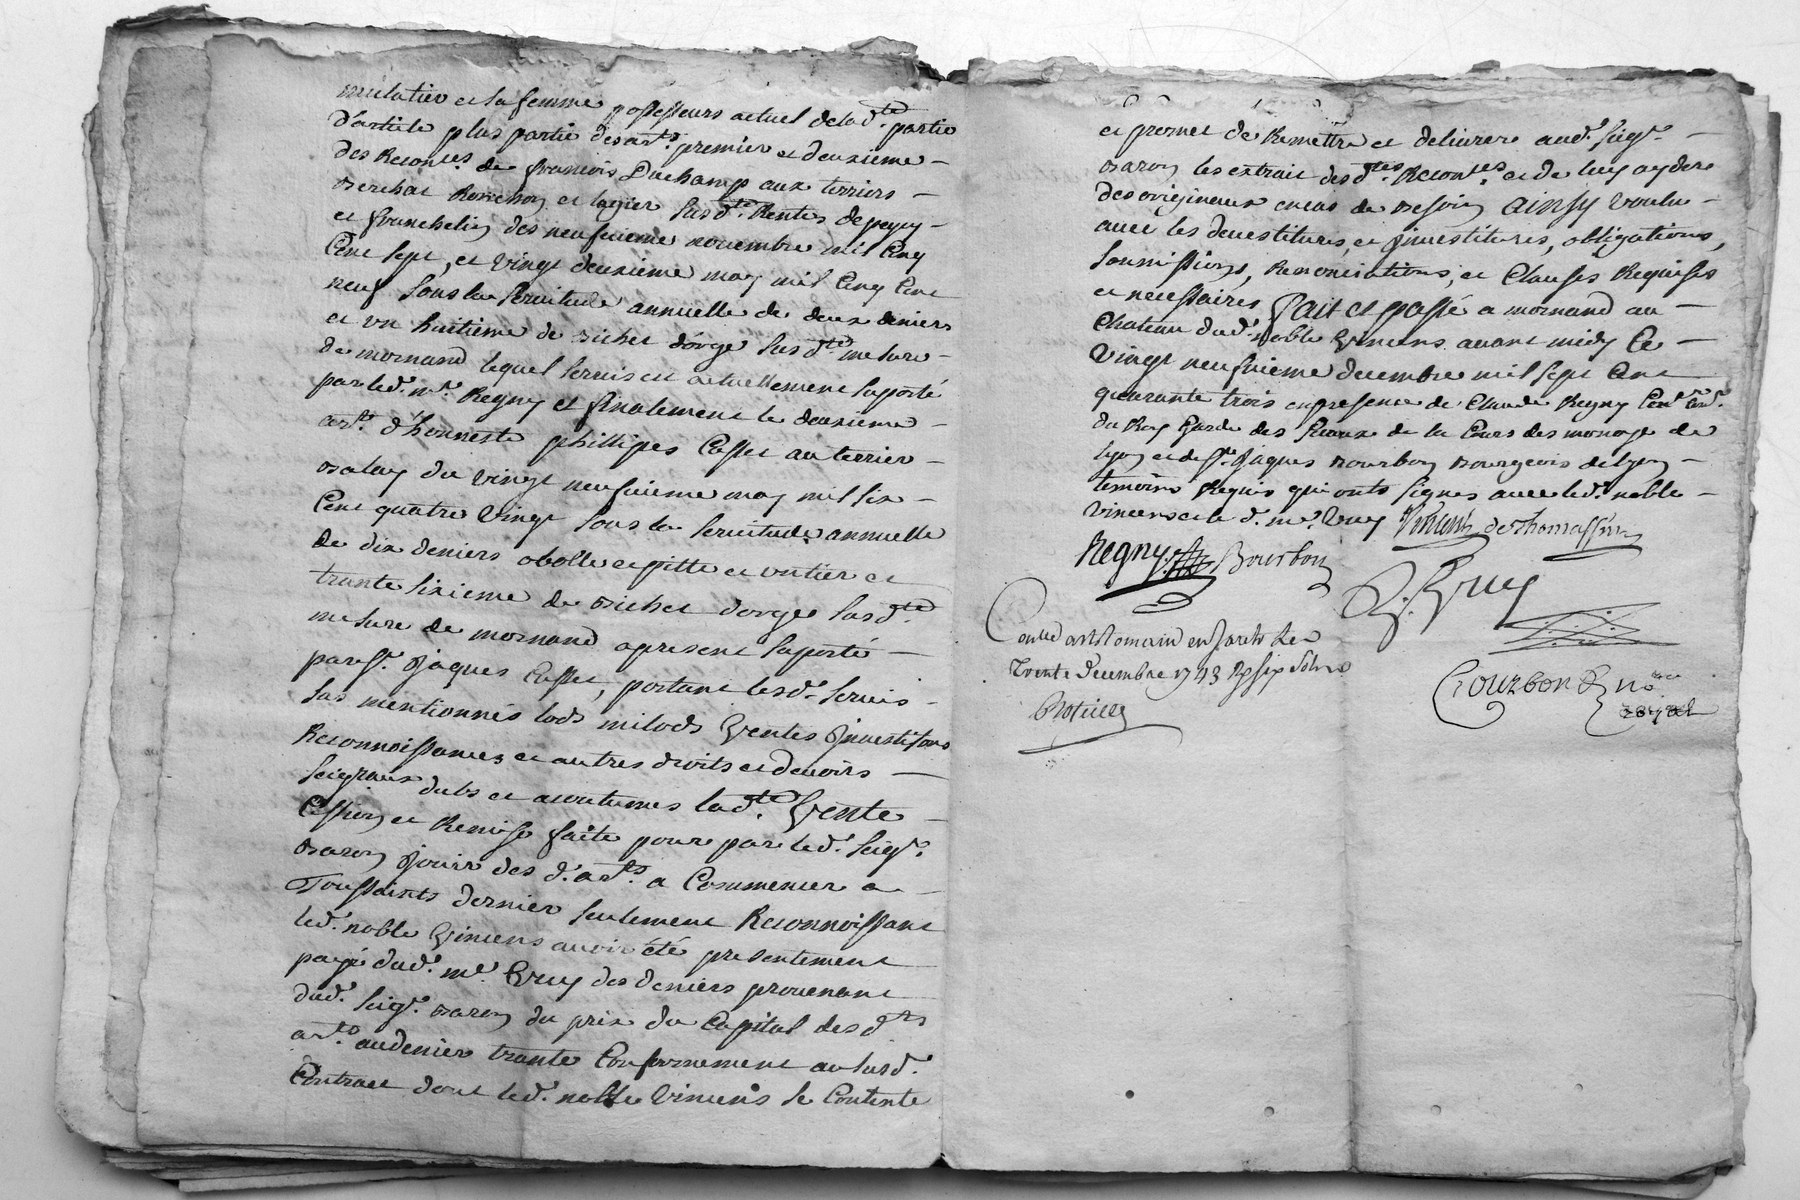 mulatier et sa femme possesseurs actuel de la d.te partie
d'article plus partie des art.s premier et deuxieme
des Reconces de francois Duchamp aux terriers
Berchat Ronchon et lagier susd.te Rentes de
et franchelin des neufvieme novembre mil Cinq
Cent sept, et vingt deuxieme may mil Cinq Cent
neuf sous la servitude annuelle de deux deniers
et un huitieme de bichet d'orge susd.te mesure
de mornand lequel servis est actuellement suporté
par led.t m.e Regny et finalement le deuxieme
art.e d'honneste phillipes Cassel au terrier
balay du vingt neufvieme may mil six
Cent quatre vingt sous la servitude annuelle
de dix deniers obolle et pitte et un tier et
trente sixieme de bichet d'orge susd.te
mesure de mornand a present suporté
par s.r Jaques Cassel, portant lesd.s servis
sus mentionnés lods milods Ventes Investisons
Reconnoissances et autres droits et devoirs
seigneux dubs et acoutumés lad.te Vente
Cession et Remise faite pour par led.t seig.r
baron Jouir des d.s art.s a Commencer a
Toussaints dernier seulement Reconnoissant
led.t noble Vincens avoir été presentement
payé dud.t m.e Gruy des deniers provenant
dud.t seig.r baron du prix du Capital des d.ts
art.s au denier trente Conformement au susd.t
Contract dont led.t noble Vincens se Contente
et promet de Remettre et delivrer aud.t seig.r
baron les extrait des d.tes Recon.ces et de luy ayder
des origineaux en cas de besoin ainsy voulu
avec les devestitures, et Jnvestitures, obligations,
soumissions, Renonciations, et Clauses Requises
et necessaires fait et passé a mornand au
Chateau dud.t noble Vincens avant midy Ce
Vingt neufvieme decembre mil sept Cent
quarante trois en presence de Claude Regny
du Roy Garde des sceaux de la Cours des monoye de
lyon et de s.r Jaques Bourbon Bourgeois de lyon
temoins Requis qui onts signés avec led.t noble
Vincens et le d.t m.e Gruy Vincens de Thomassin
Regny Bourbon
Gruy
Conllé a st Romain en Jarets le
Trente decembre 1743 R six sols
Gourbon no.re
royal